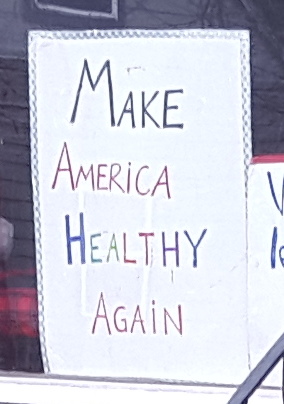 MAKE
AMERiCA
HEALTHY
AGAiN